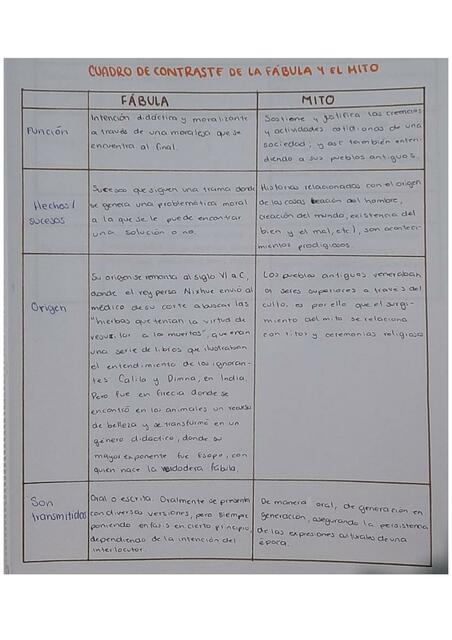 CUADRO DE CONTRASTE DE LA FÁBULA Y EL MITO
FÁBULA
MITO
Función
Intención didáctica y moralizante
a través de una moraleja que se
encuentra al final.
Sostiene y justifica las creencias
y actividades cotidianas de una
sociedad; y así también enten-
diendo a sus pueblos antiguos.
Hechos/
sucesos
Sucesos que siguen una trama donde
se genera una problemática moral
a la que se le puede encontrar
una solución o no.
Historias relacionadas con el origen
de las cosas (creación del hombre,
creación del mundo, existencia del
bien y el mal, etc), son aconteci-
mientos prodigiosos.
Origen
Su origen se remonta al siglo VI a.C,
donde el rey persa Nixhue envió al
médico de su corte a buscar las
"hierbas que tenían la virtud de
resucitar a los muertos", que eran
una serie de libros que ilustraban
el entendimiento de los ignoran-
tes Calila y Dimna, en India.
Pero fue en Grecia donde se
encontró en los animales un recurso
de belleza y se transformó en un
género didáctico, donde su
mayor exponente fue Esopo, con
quien nace la verdadera fábula.
Los pueblos antiguos veneraban
a seres superiores a través del
culto, es por ello que el surgi-
miento del mito se relaciona
con ritos y ceremonias religiosas
Son
transmitidas
Oral o escrita. Oralmente se presenta
con diversas versiones, pero siempre
poniendo énfasis en cierto principio,
dependiendo de la intención del
interlocutor.
De manera oral, de generación en
generación, asegurando la persistencia
de las expresiones culturales de una
época.